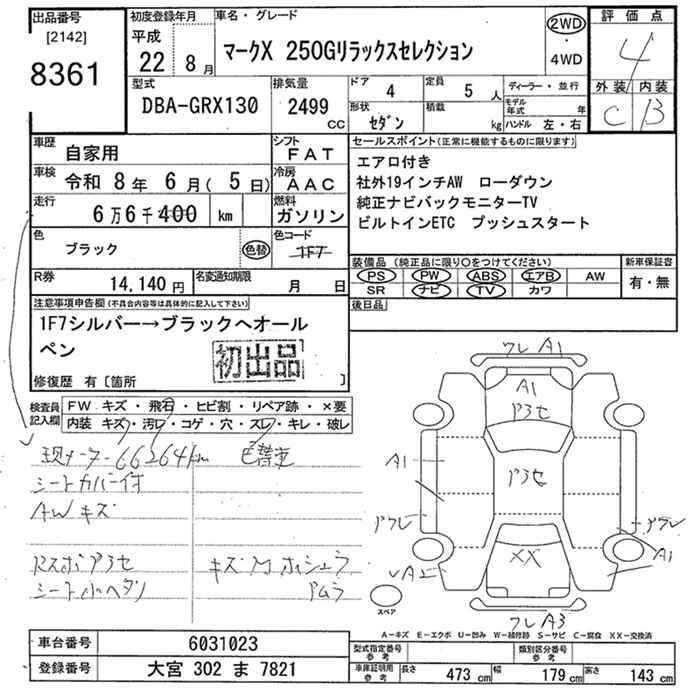 出品番号
[2142]
8361
初度登録年月
平成
22 8月
車名・グレード
マークX 250Gリラックスセレクション
2WD
・
4WD
評価点
4
外装 内装
C B
型式
DBA-GRX130
排気量
2499
CC
ドア
4
定員
5 人
形状
セダン
積載
kg
ディーラー・並行
モデル年式 年
ハンドル 左・右
車歴
自家用
シフト
FAT
車検
令和 8年 6月(5日)
冷房
AAC
走行
6万6千400 km
燃料
ガソリン
色
ブラック
色替
色コード
1F7
R券
14,140円
名変通知期限
月 日
セールスポイント(正常に機能するものに限ります)
エアロ付き
社外19インチAW ローダウン
純正ナビバックモニターTV
ビルトインETC プッシュスタート
装備品(純正品に限り○をつけてください)
PS PW ABS エアB AW
SR ナビ TV カワ
新車保証書
有・無
後日品
注意事項申告欄(不具合内容等は具体的に記入して下さい)
1F7シルバー→ブラックへオール
ペン
初出品
修復歴 有[箇所 ]
検査員
記入欄
FW キズ・飛石・ヒビ割・リペア跡・×要
内装 キズ・汚れ・コゲ・穴・スレ・キレ・破レ
現メーター66264km 色替車
シートカバー付
AWキズ
Rスポアラセ
シート小ヘタリ
キズ
フレA1
A1
アラセ
A1
アラセ
アラセ
A1
XX
フレA3
スペア
A-キズ E-エクボ U-凹み W-補修跡 S-サビ C-腐食 XX-交換済
車台番号
6031023
登録番号
大宮 302 ま 7821
型式指定番号
参考
類別区分番号
参考
車庫証明用
参考
長さ 473cm 幅 179cm 高さ 143cm